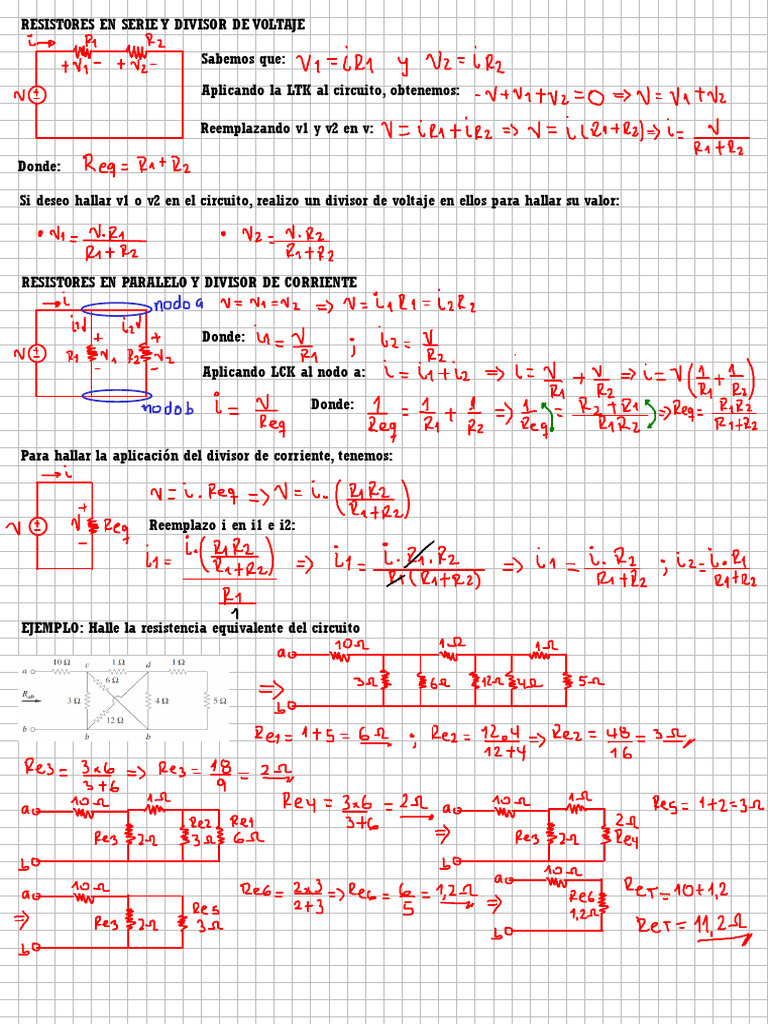 RESISTORES EN SERIE Y DIVISOR DE VOLTAJE
i R1 R2
+ V1 - + V2 -
V
Sabemos que: V1 = iR1 y V2 = iR2
Aplicando la LTK al circuito, obtenemos: -V+V1+V2=0 => V = V1+V2
Reemplazando v1 y v2 en v: V = iR1+iR2 => V = i(R1+R2) => i = V/(R1+R2)
Donde: Req = R1+R2
Si deseo hallar v1 o v2 en el circuito, realizo un divisor de voltaje en ellos para hallar su valor:
• V1 = V.R1/(R1+R2) • V2 = V.R2/(R1+R2)
RESISTORES EN PARALELO Y DIVISOR DE CORRIENTE
i nodo a V = V1 = V2 => V = i1R1 = i2R2
i1 i2
V R1 + V1 - R2 + V2 -
nodo b
Donde: i1 = V/R1 ; i2 = V/R2
Aplicando LCK al nodo a: i = i1+i2 => i = V/R1 + V/R2 => i = V(1/R1 + 1/R2)
i = V/Req Donde: 1/Req = 1/R1 + 1/R2 => 1/Req = (R2+R1)/(R1R2) => Req = R1R2/(R1+R2)
Para hallar la aplicación del divisor de corriente, tenemos:
i
V + V - Req
V = i.Req => V = i.(R1R2/(R1+R2))
Reemplazo i en i1 e i2:
i1 = i.(R1R2/(R1+R2))/(R1/1) => i1 = i.R1.R2/(R1(R1+R2)) => i1 = i.R2/(R1+R2) ; i2 = i.R1/(R1+R2)
EJEMPLO: Halle la resistencia equivalente del circuito
10 Ω c 1 Ω d 1 Ω
a
6 Ω
Rab 3 Ω 4 Ω 5 Ω
12 Ω
b b b
=> a 10Ω 1Ω 1Ω
3Ω 6Ω 12Ω 4Ω 5Ω
b
Re1 = 1+5 = 6Ω ; Re2 = 12.4/(12+4) => Re2 = 48/16 = 3Ω
Re3 = 3x6/(3+6) => Re3 = 18/9 = 2Ω
a 10Ω 1Ω
Re3 2Ω Re2 3Ω Re1 6Ω
b
Re4 = 3x6/(3+6) = 2Ω
=> a 10Ω 1Ω
Re3 2Ω 2Ω Re4
b
Re5 = 1+2 = 3Ω
=> a 10Ω
Re3 2Ω Re5 3Ω
b
Re6 = 2x3/(2+3) => Re6 = 6/5 = 1,2Ω
=> a 10Ω
Re6 1,2Ω
b
ReT = 10+1,2
ReT = 11,2Ω